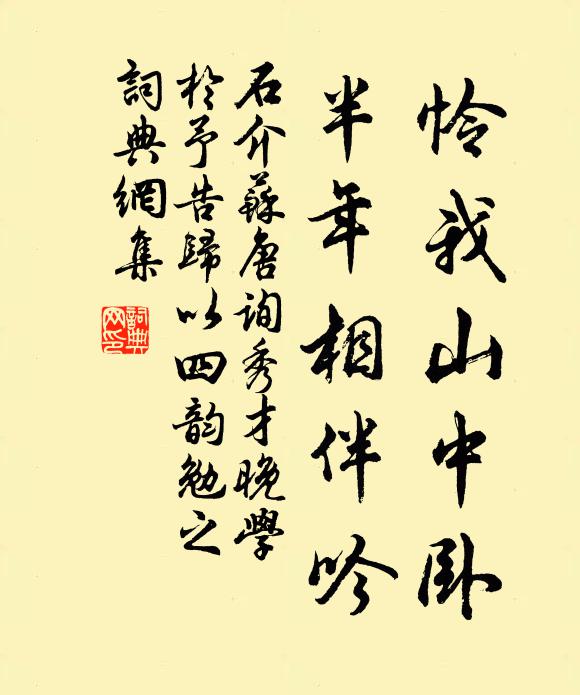 怜我山中卧
半年相伴吟
石介蘇唐詢秀才晚學
於予告歸以四韵勉之
詞典網集
詞典
网印